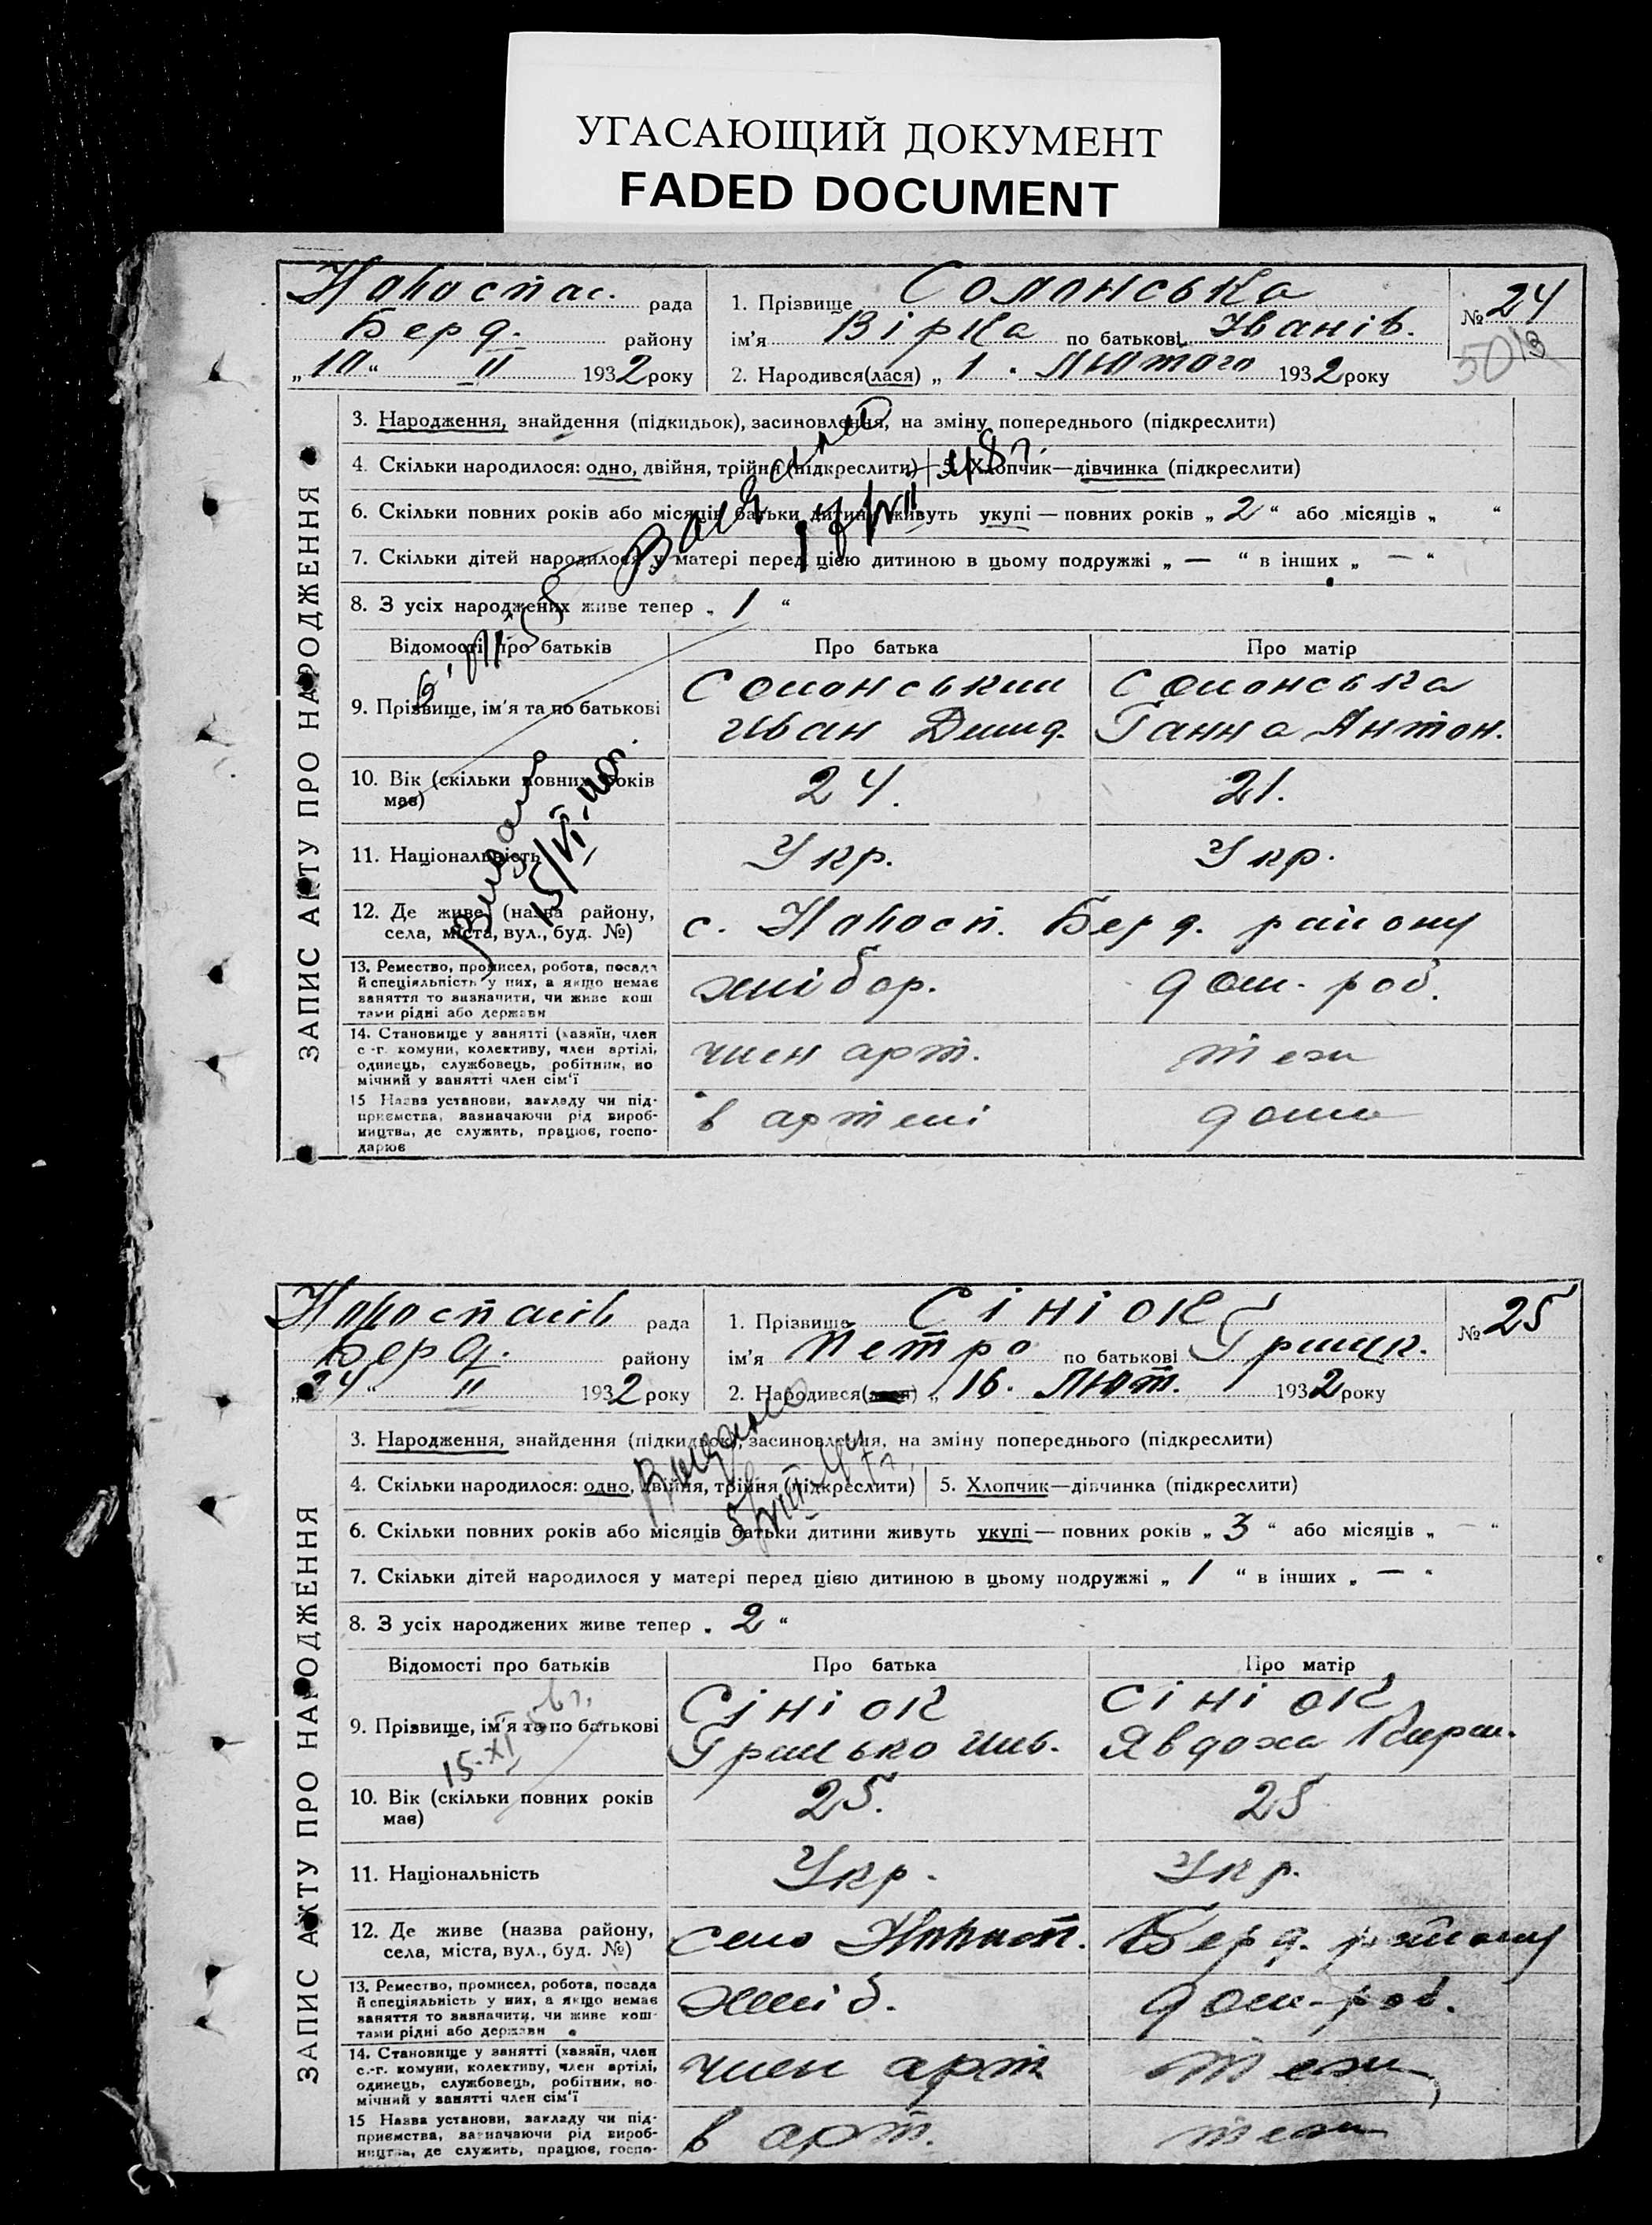 УГАСАЮЩИЙ ДОКУМЕНТ
FADED DOCUMENT
ЗАПИС АКТУ ПРО НАРОДЖЕННЯ
Новоспас. рада
Берд. району
„10“ II 1932 року
1. Прізвище Солонська
ім'я Вірка по батькові Іванів.
2. Народився(лася) „1. Лютого 1932 року
№ 24
50
3. Народження, знайдення (підкидьок), засиновлення, на зміну попереднього (підкреслити)
4. Скільки народилося: одно, двійня, трійня (підкреслити) 5. Хлопчик—дівчинка (підкреслити)
6. Скільки повних років або місяців батьки дитини живуть укупі — повних років „ 2 “ або місяців „ “
7. Скільки дітей народилося у матері перед цією дитиною в цьому подружжі „ — “ в інших „ — “
8. З усіх народжених живе тепер „ 1 “
Відомості про батьків Про батька Про матір
9. Прізвище, ім'я та по батькові
Солонський
Иван Демид.
Солонська
Ганна Антон.
10. Вік (скільки повних років
має)
24. 21.
11. Національність Укр. Укр.
12. Де живе (назва району,
села, міста, вул., буд. №)
с. Новосп. Берд. району
13. Ремество, промисел, робота, посада
й спеціяльність у них, а якщо немає
заняття то зазначити, чи живе кош
тами рідні або держави
хлібор. дом. роб.
14. Становище у занятті (хазяїн, член
с.-г. комуни, колективу, член артілі,
одинець, службовець, робітник, по
мічний у занятті член сім'ї
член арт. теж
15 Назва установи, закладу чи під-
приємства, зазначаючи рід вироб-
ництва, де служить, працює, госпо-
дарює
в артелі дома
15/VI-40.
ЗАПИС АКТУ ПРО НАРОДЖЕННЯ
Новоспасів рада
Берд. району
„24“ II 1932 року
1. Прізвище Сініок
ім'я Петро по батькові Гришк.
2. Народився(лася) „16. Лют. 1932 року
№ 25
3. Народження, знайдення (підкидьок), засиновлення, на зміну попереднього (підкреслити)
4. Скільки народилося: одно, двійня, трійня (підкреслити) 5. Хлопчик—дівчинка (підкреслити)
6. Скільки повних років або місяців батьки дитини живуть укупі — повних років „ 3 “ або місяців „ — “
7. Скільки дітей народилося у матері перед цією дитиною в цьому подружжі „ 1 “ в інших „ — “
8. З усіх народжених живе тепер „ 2 “
Відомості про батьків Про батька Про матір
9. Прізвище, ім'я та по батькові
Сініок
Грицько
Сініок
Явдоха
15-XI 56 г.
10. Вік (скільки повних років
має)
25. 25
11. Національність Укр. Укр.
12. Де живе (назва району,
села, міста, вул., буд. №)
село Берд. району
13. Ремество, промисел, робота, посада
й спеціяльність у них, а якщо немає
заняття то зазначити, чи живе кош-
тами рідні або держави
хліб. дом-роб.
14. Становище у занятті (хазяїн, член
с.-г. комуни, колективу, член артілі,
одинець, службовець, робітник, по-
мічний у занятті член сім'ї
член арт теж
15 Назва установи, закладу чи під-
приємства, зазначаючи рід вироб-
ництва, де служить, працює, госпо-
в арт. теж